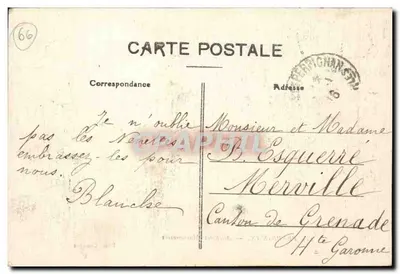 66
CARTE POSTALE
Correspondance
Adresse
PERPIGNAN
Je n'oublie
pas les
embrassez-les pour
nous.
Blanche
Monsieur et Madame
B. Esquerré
Merville
Canton de Grenade
Hte Garonne